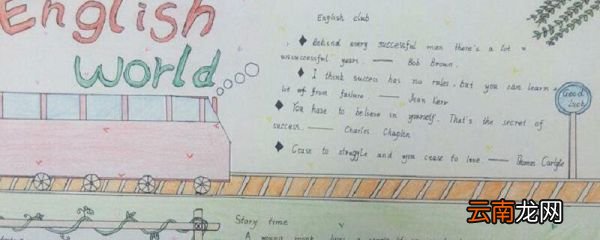 English
world
English club
◆ Behind every successful man there's a lot
unsuccessful years. —— Bob Brown.
◆ I think success has no rules, but you can learn a
lot of from failure —— Jean Kerr
◆ You have to believe in yourself. That's the secret of
success. —— Charles Chaplin
◆ Cease to struggle and you cease to live. —— Thomas Carlyle
Good
luck
Story time
A young monk
云南龙网